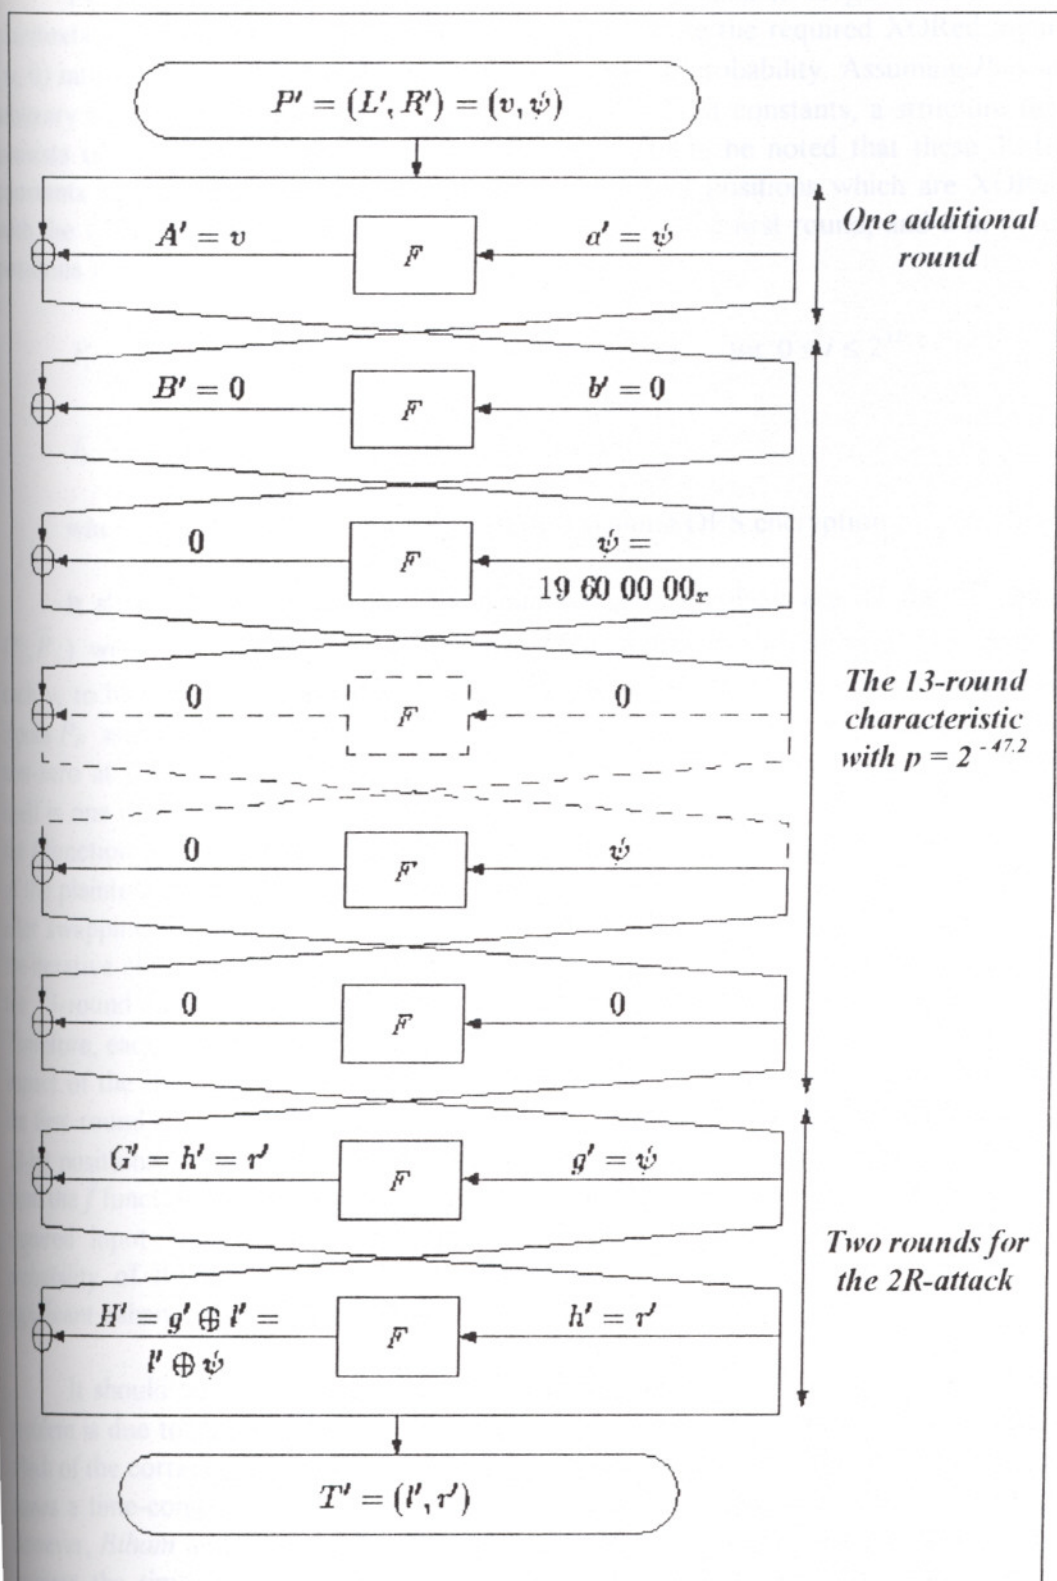 P' = (L', R') = (v, ψ)
A' = v
F
a' = ψ
One additional
round
B' = 0
F
b' = 0
0
F
ψ =
19 60 00 00ₓ
0
F
0
The 13-round
characteristic
with p = 2⁻⁴⁷·²
0
F
ψ
0
F
0
G' = h' = r'
F
g' = ψ
Two rounds for
the 2R-attack
H' = g' ⊕ l' =
l' ⊕ ψ
F
h' = r'
T' = (l', r')